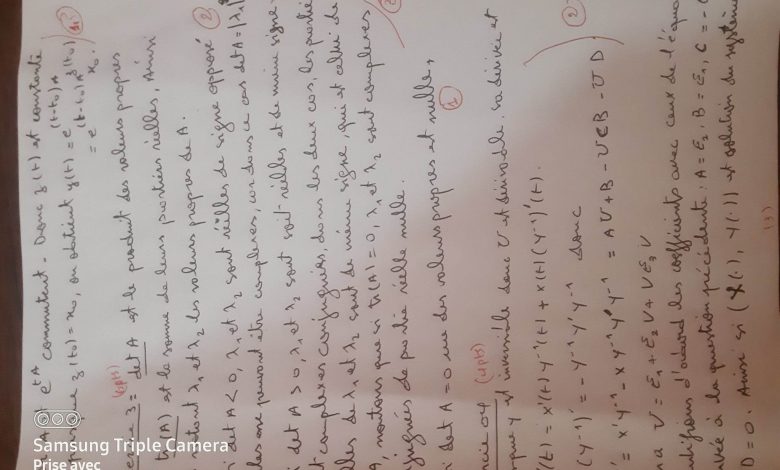 A et e^{tA} commutent. Donc z(t) est constante
que z(t₀) = x₀, on obtient y(t) = e^{(t-t₀)A} z(t₀)
= e^{(t-t₀)A} x₀.
3 = det A est le produit des valeurs propres
tr(A) est la somme de leurs parties réelles, Ainsi
λ₁ et λ₂ les valeurs propres de A.
det A < 0, λ₁ et λ₂ sont réelles de signe opposé
peuvent être complexes, car dans ce cas det A = |λ₁|²
det A > 0, λ₁ et λ₂ sont réelles et de même signe
complexes conjuguées, dans les deux cas, les parties
de λ₁ et λ₂ sont de même signe, qui est celui de
A, notons que si tr(A) = 0, λ₁ et λ₂ sont complexes
de partie réelle nulle.
det A = 0 une des valeurs propres est nulle.
04 (4pts)
Y est inversible donc U est dérivable. sa dérivée est
(t) = X'(t) Y⁻¹(t) + X(t) (Y⁻¹)'(t).
(Y⁻¹)' = - Y⁻¹ Y' Y⁻¹ donc
= X'Y⁻¹ - X Y⁻¹ Y' Y⁻¹ = A U + B - U C B - U D
a U = E₁ + E₂ U + U E₃ U
d'accord les coefficients avec ceux de l'équa
à la question précédente : A = E₂, B = E₁, C = -
D = 0. Ainsi si (X(·), Y(·)) est solution du système
Samsung Triple Camera
Prise avec